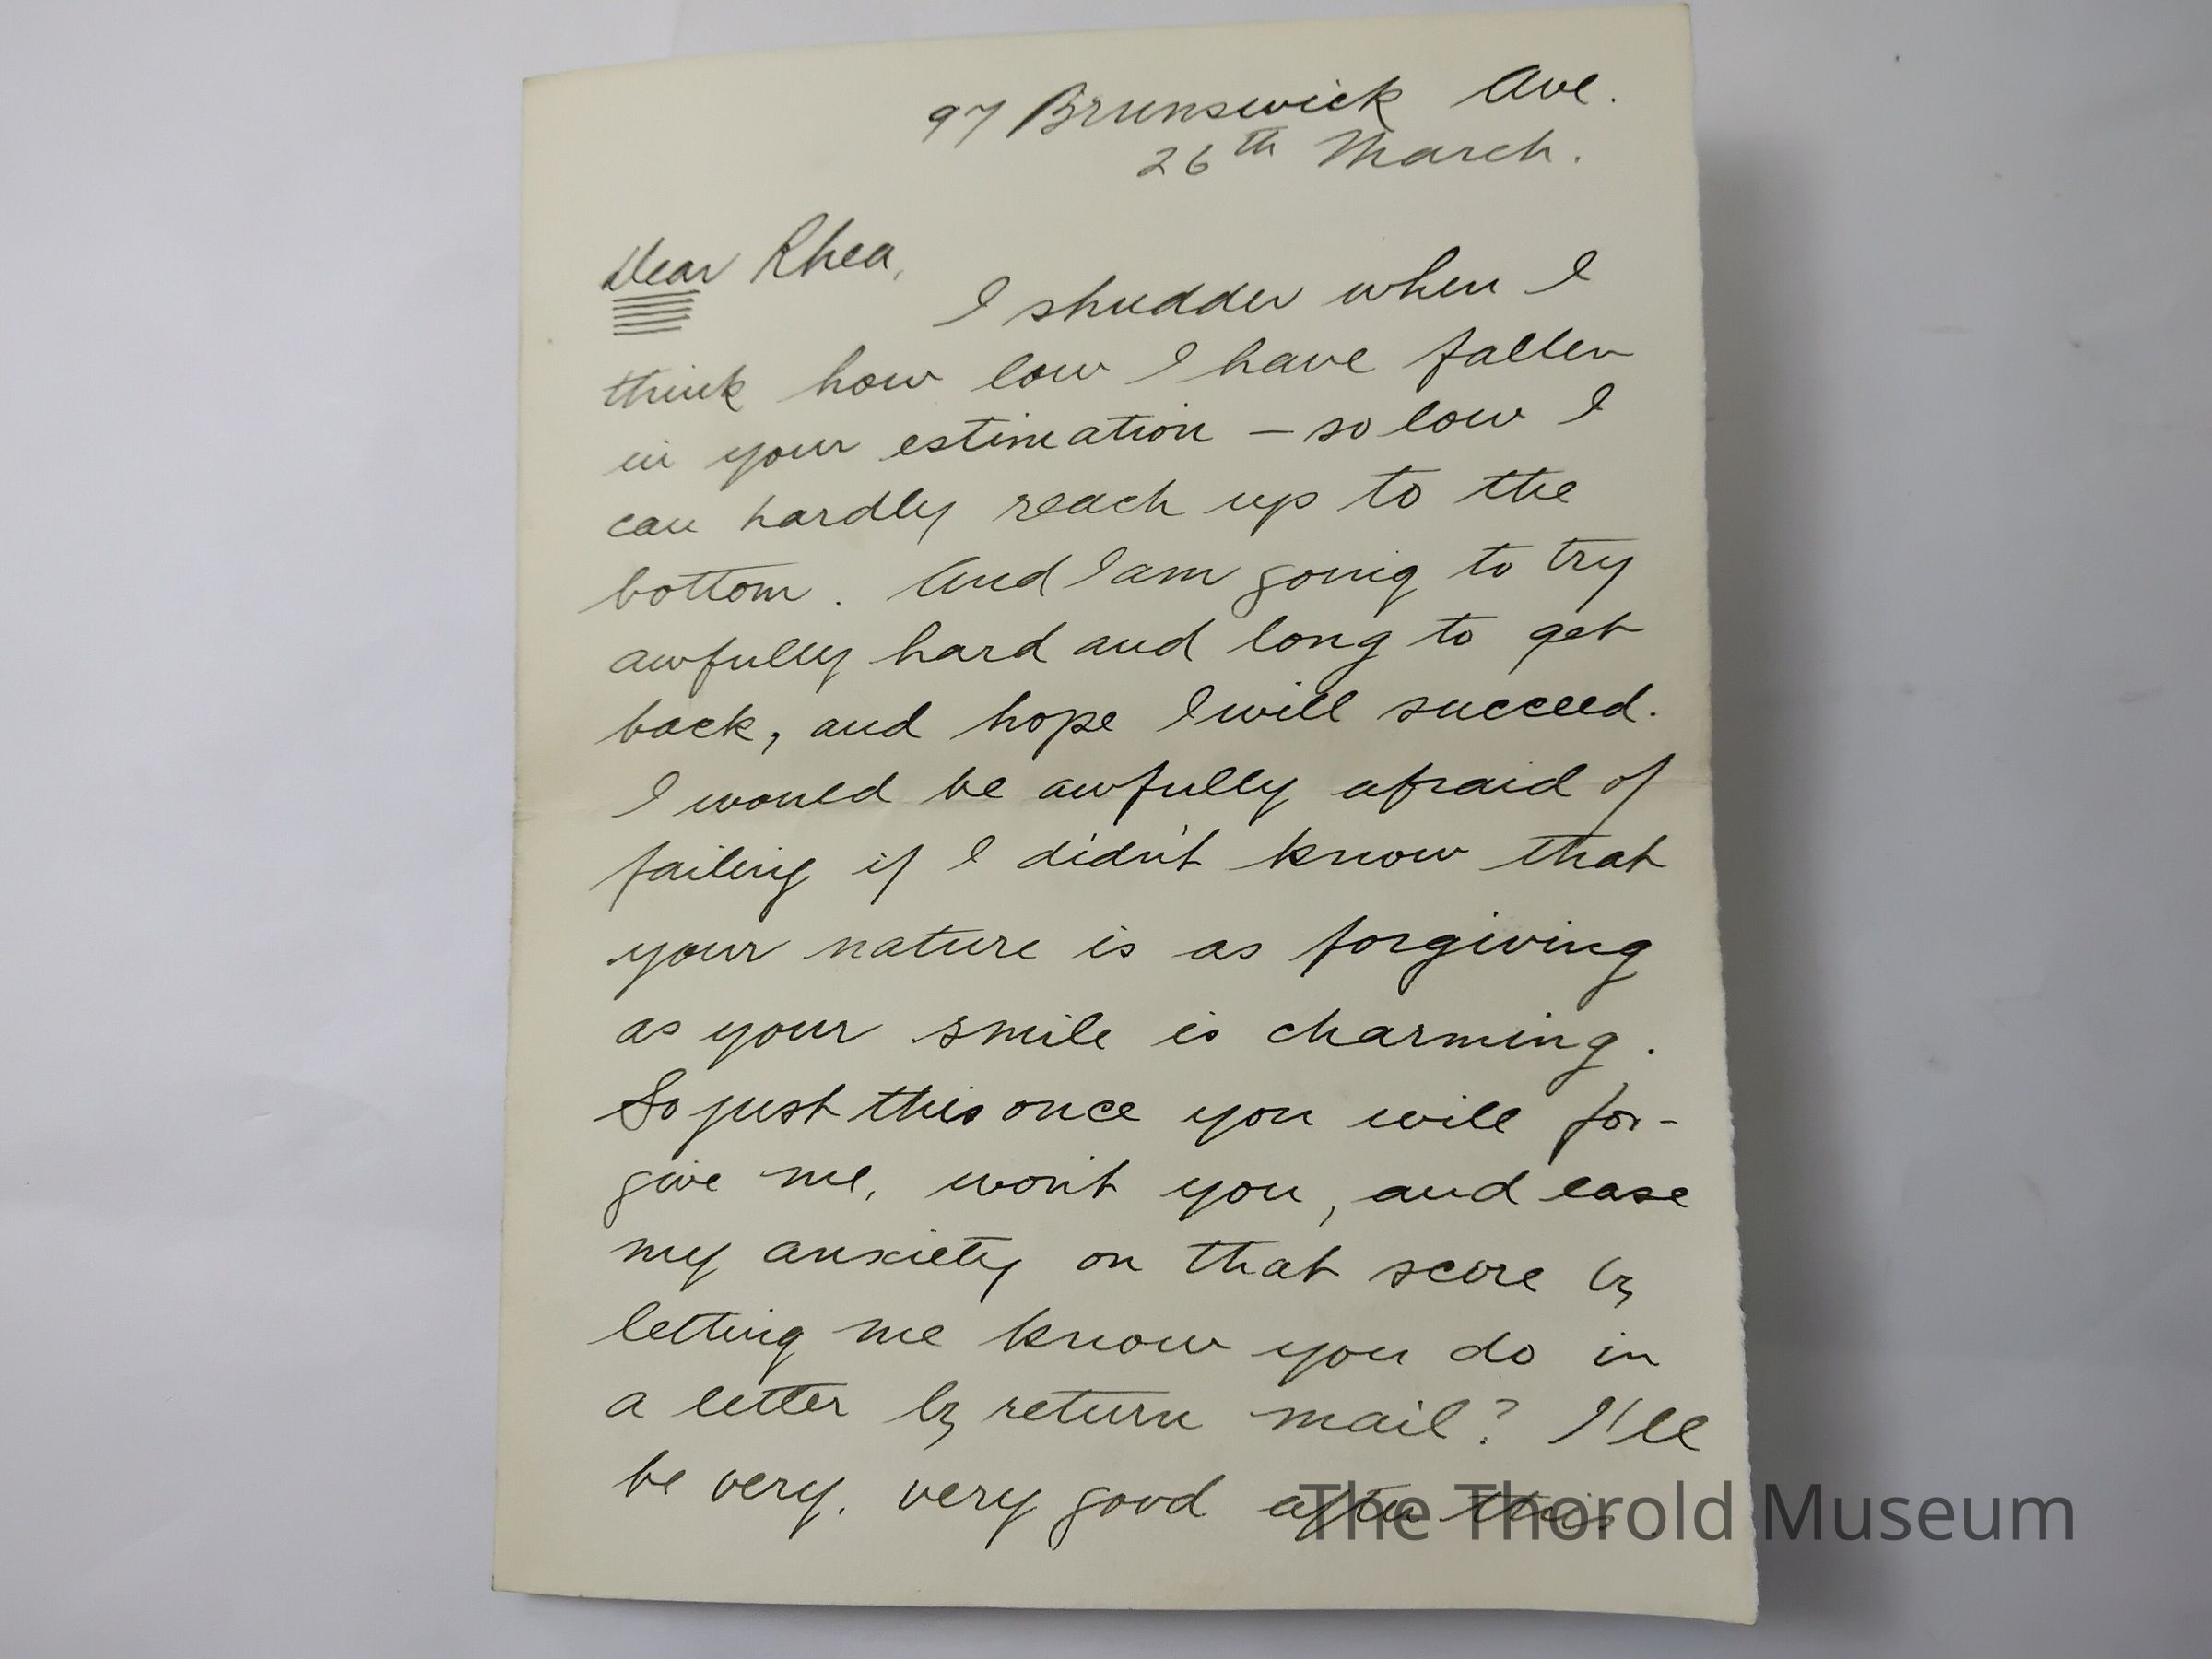 97 Brunswick Ave.
26th March.
Dear Rhea,
I shudder when I
think how low I have fallen
in your estimation – so low I
can hardly reach up to the
bottom. And I am going to try
awfully hard and long to get
back, and hope I will succeed.
I would be awfully afraid of
failing if I didn't know that
your nature is as forgiving
as your smile is charming.
So just this once you will for-
give me, won't you, and ease
my anxiety on that score by
letting me know you do in
a letter by return mail? I'll
be very, very good after this.
The Thorold Museum